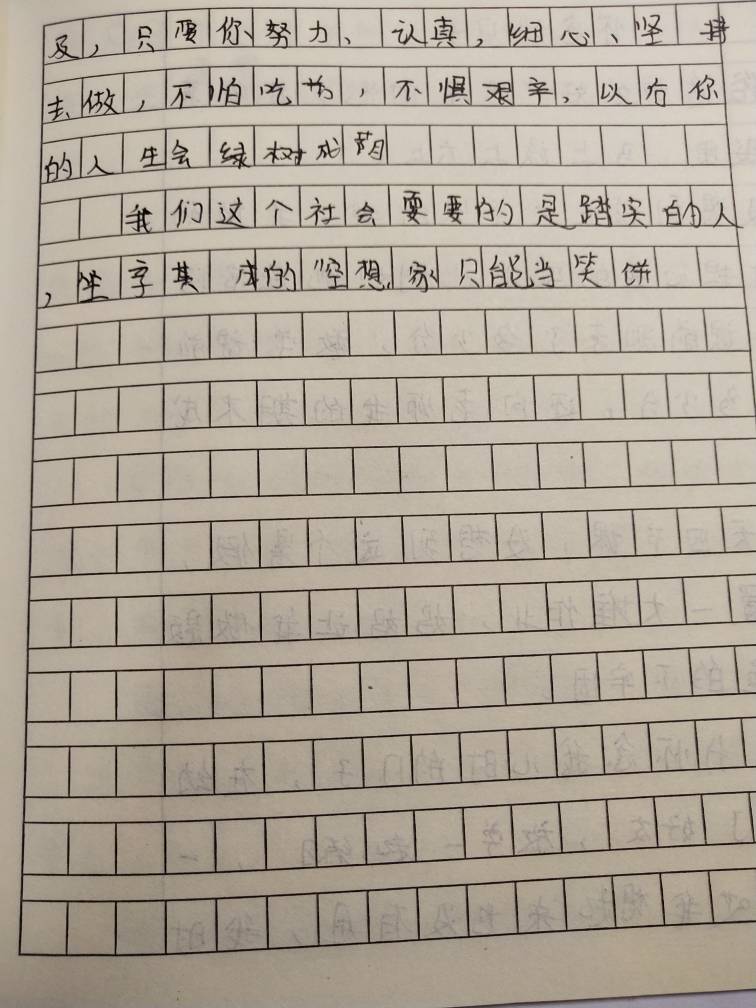 及，只要你努力、认真，细心、坚持
去做，不怕吃苦，不惧艰辛，以后你
的人生会绿树成荫
我们这个社会需要的是踏实的人
，坐享其成的“空想”家只能当笑饼